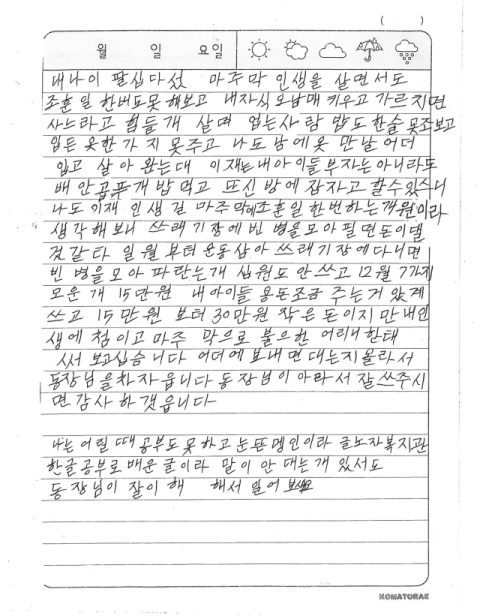 ( )
월 일 요일
내나이 팔십다섯 마주막 인생을 살면서도
조훈일 한번도못 해보고 내자식 오남매 키우고 가르치면
사느라고 힘들게 살며 업는사람 밥도 한술 못조보고
입든 옷한가지 못주고 나도 남에옷 만날 어더
입고 살아 왔는대 이재는 내아이들 부자는 아니라도
배 안곱푸개 밥먹고 뜨신 방에 잠자고 할수있스니
나도 이재 인생길 마주막에 조훈일 한번 하는개 원이라
생각해보니 쓰래기장에 빈 병을 모아 필면 돈이댈
것같타 일월 부터 운동삼아 쓰래기장에 다니면
빈 병을 모아 파란는개 십원도 안쓰고 12월 7가지
모운개 15만원 내아이들 용돈조금 주는거 았계
쓰고 15만원 보터 30만원 작은 돈이지만 내인
생에 첨이고 마주 막으로 불으한 어리니한태
써 보고십습니다 어더에 보내면 대는지 몰라서
동장님을 차자 읍니다 동장님이 아라서 잘 쓰주시
면 감사 하갯읍니다
나는 어릴 때 공부도 못하고 눈뜬 멩인이라 글노자복지관
한글공부로 배운 글이라 말이 안 대는개 있서도
동장님이 잘이해 해서 일어 보세요
KOMATORAE